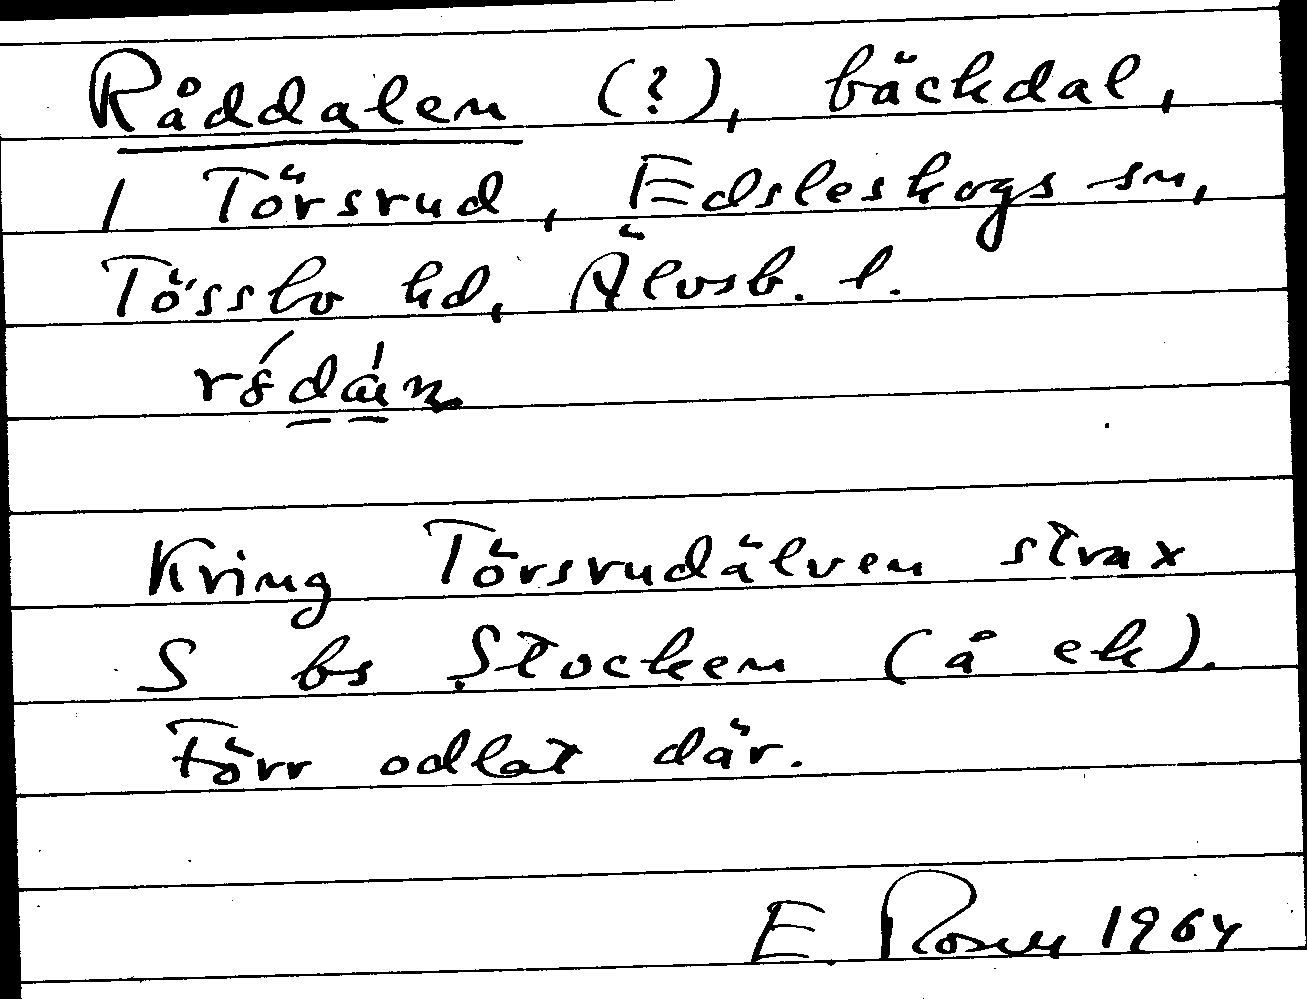 Råddalen (?), bäckdal,
I Törsrud, Edsleskogs sn,
Tössbo hd, Älvsb. l.
Kring Törsrudälven strax
S bs Stocken (å ek).
Förr odlat där.
E. Rosen 1964